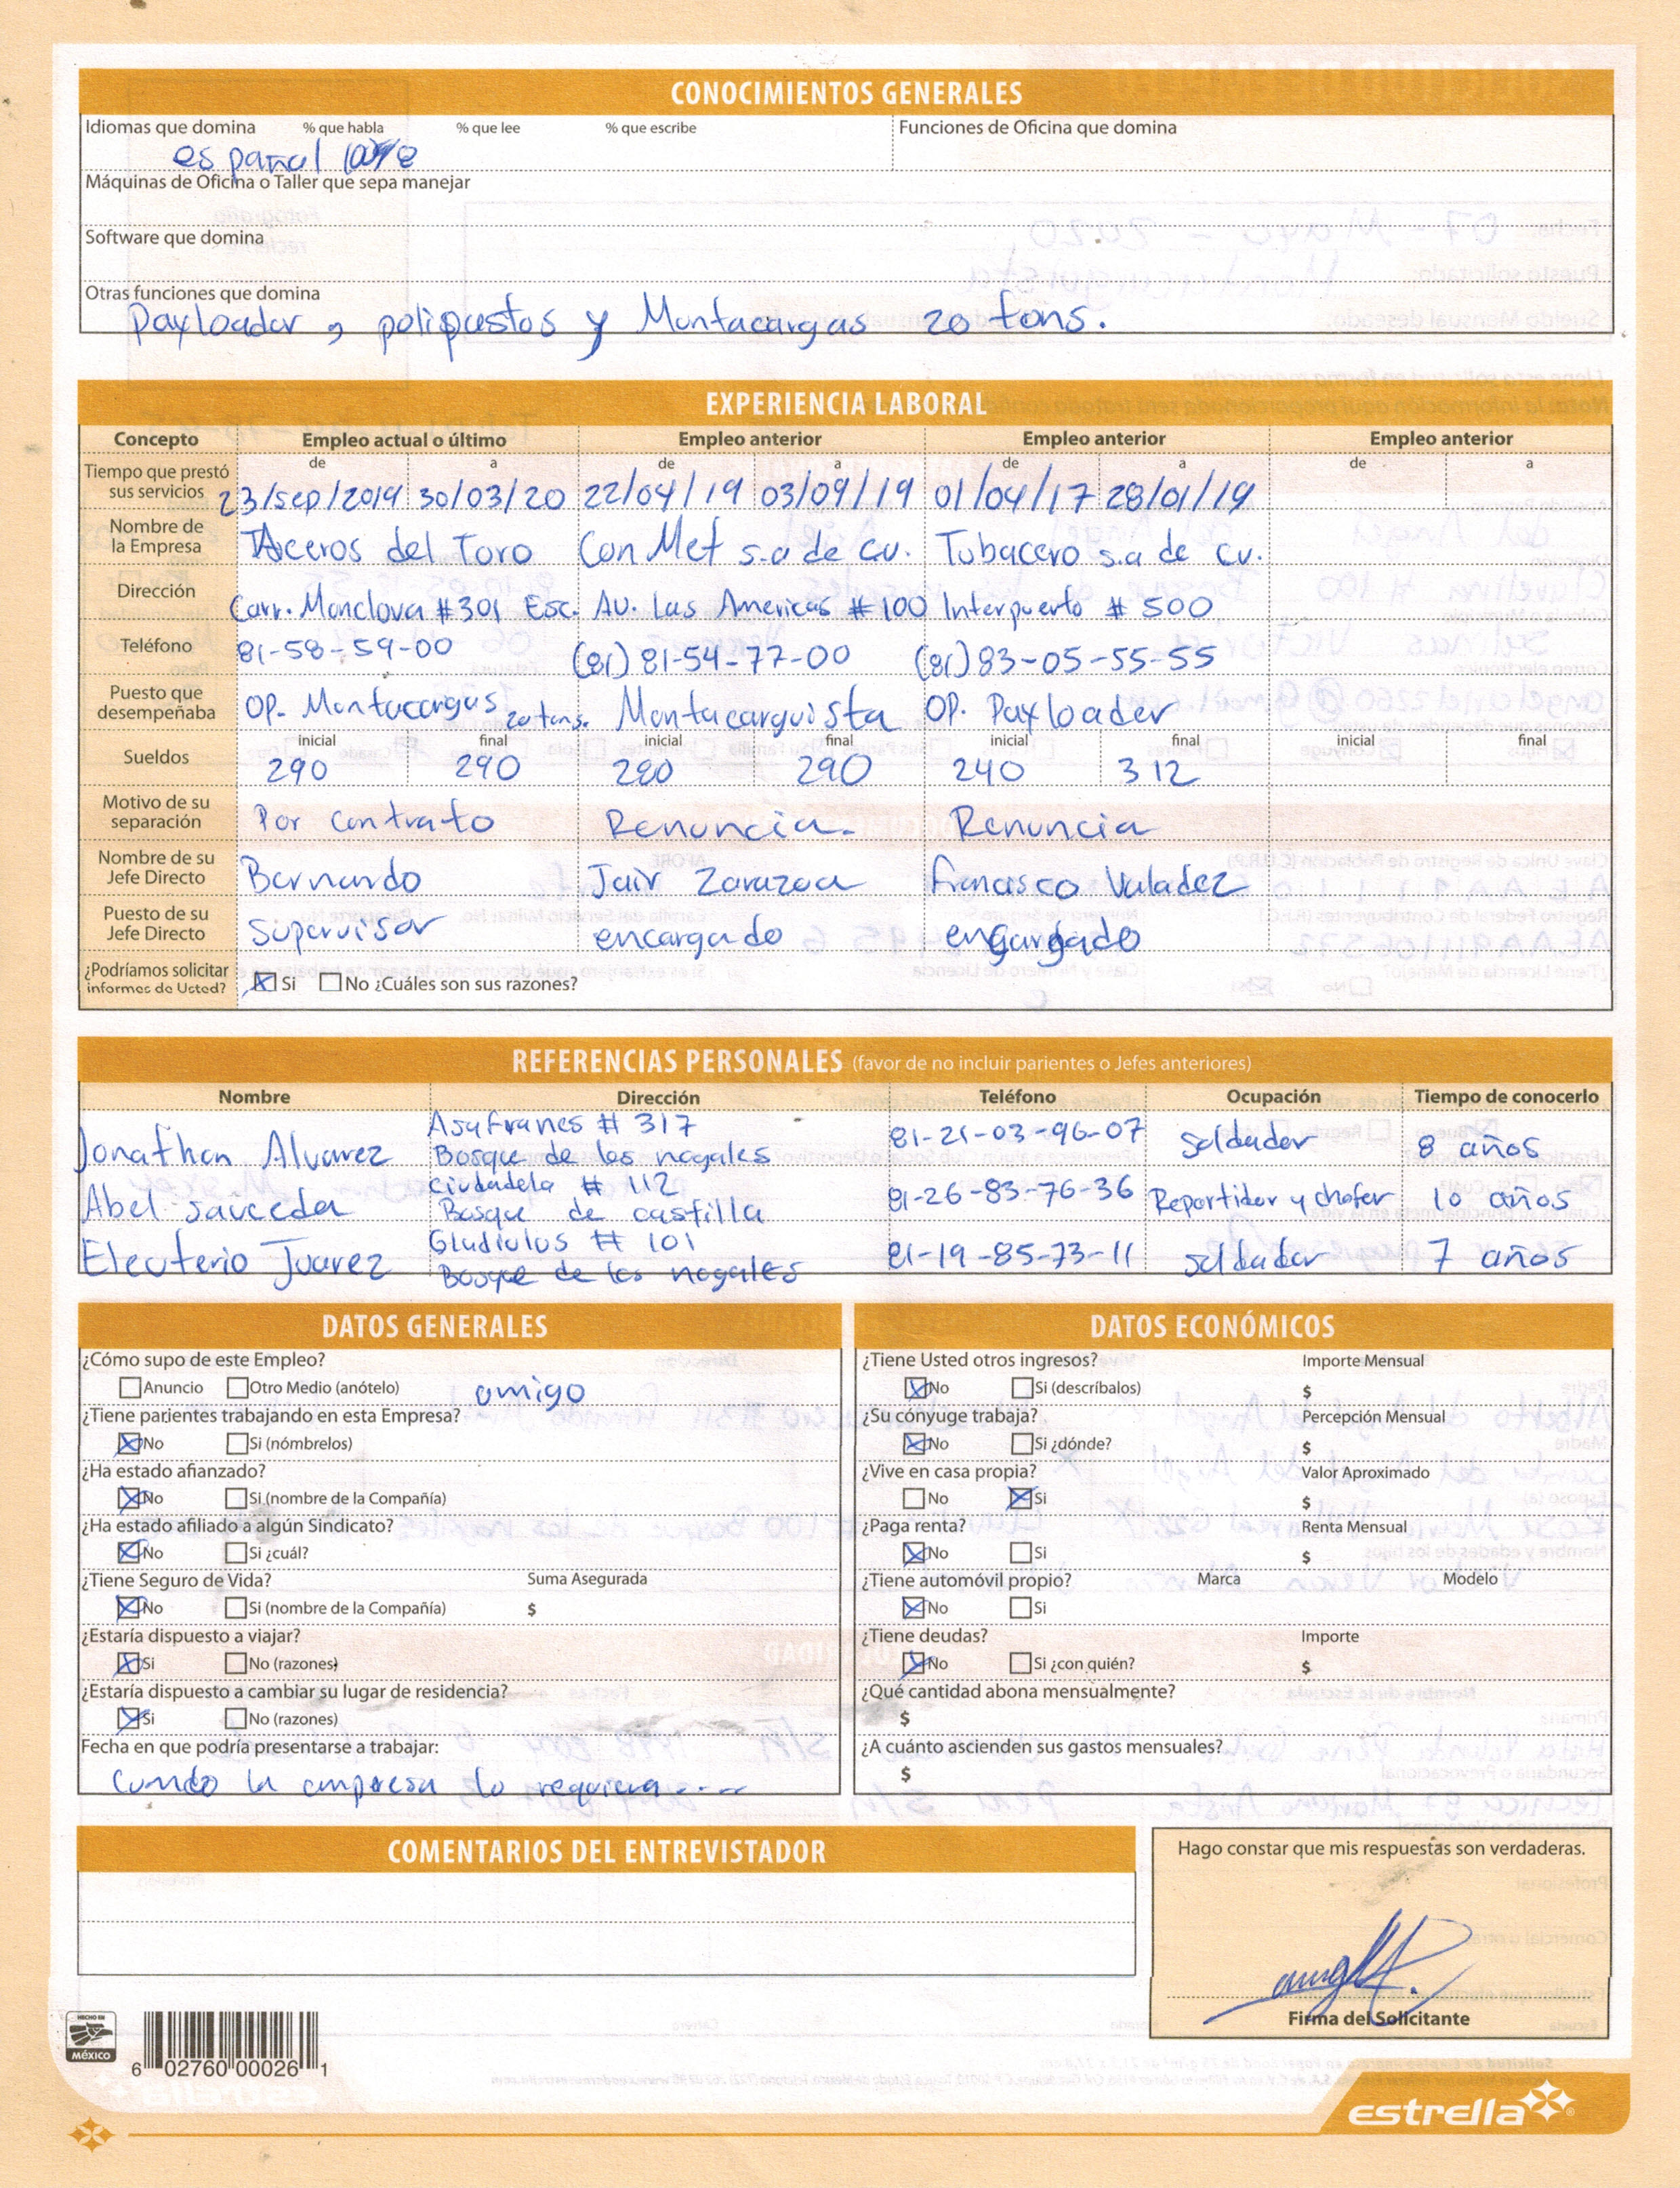 CONOCIMIENTOS GENERALES
Idiomas que domina % que habla % que lee % que escribe Funciones de Oficina que domina
español
Máquinas de Oficina o Taller que sepa manejar
Software que domina
Otras funciones que domina
Payloader, polipastos y Montacargas 20 tons.
EXPERIENCIA LABORAL
Concepto Empleo actual o último Empleo anterior Empleo anterior Empleo anterior
Tiempo que prestó sus servicios de a de a de a de a
23/sep/2019 30/03/20 22/04/19 03/09/19 01/04/17 28/01/19
Nombre de la Empresa Aceros del Toro Con Met s.a de c.v. Tubacero s.a de c.v.
Dirección Carr. Monclova #301 Esc. AV. Las Americas #100 Interpuerto # 500
Teléfono 81-58-59-00 (81) 81-54-77-00 (81) 83-05-55-55
Puesto que desempeñaba OP. Montacargas 20 tons. Montacarguista OP. Payloader
Sueldos inicial final inicial final inicial final inicial final
290 290 280 290 240 312
Motivo de su separación Por contrato Renuncia. Renuncia
Nombre de su Jefe Directo Bernardo Jair Zarazoa Francisco Valadez
Puesto de su Jefe Directo Supervisor encargado engargado
¿Podríamos solicitar informes de Usted? Si No ¿Cuáles son sus razones?
REFERENCIAS PERSONALES (favor de no incluir parientes o Jefes anteriores)
Nombre Dirección Teléfono Ocupación Tiempo de conocerlo
Jonathan Alvarez Asafranes # 317 Bosque de los nogales 81-21-03-96-07 soldador 8 años
Abel sauceda ciudadela # 112 Bosque de castilla 81-26-83-76-36 Repartidor y chofer 10 años
Eleuterio Juarez Gladiolos # 101 Bosque de los nogales 81-19-85-73-11 soldador 7 años
DATOS GENERALES
¿Cómo supo de este Empleo?
Anuncio Otro Medio (anótelo) amigo
¿Tiene parientes trabajando en esta Empresa?
No Si (nómbrelos)
¿Ha estado afianzado?
No Si (nombre de la Compañía)
¿Ha estado afiliado a algún Sindicato?
No Si ¿cuál?
¿Tiene Seguro de Vida? Suma Asegurada
No Si (nombre de la Compañía) $
¿Estaría dispuesto a viajar?
Si No (razones)
¿Estaría dispuesto a cambiar su lugar de residencia?
Si No (razones)
Fecha en que podría presentarse a trabajar:
Cuando la empresa lo requiera....
DATOS ECONÓMICOS
¿Tiene Usted otros ingresos? Importe Mensual
No Si (descríbalos) $
¿Su cónyuge trabaja? Percepción Mensual
No Si ¿dónde? $
¿Vive en casa propia? Valor Aproximado
No Si $
¿Paga renta? Renta Mensual
No Si $
¿Tiene automóvil propio? Marca Modelo
No Si
¿Tiene deudas? Importe
No Si ¿con quién? $
¿Qué cantidad abona mensualmente?
$
¿A cuánto ascienden sus gastos mensuales?
$
COMENTARIOS DEL ENTREVISTADOR
Hago constar que mis respuestas son verdaderas.
Firma del Solicitante
HECHO EN
MÉXICO
6 02760 00026 1
estrella